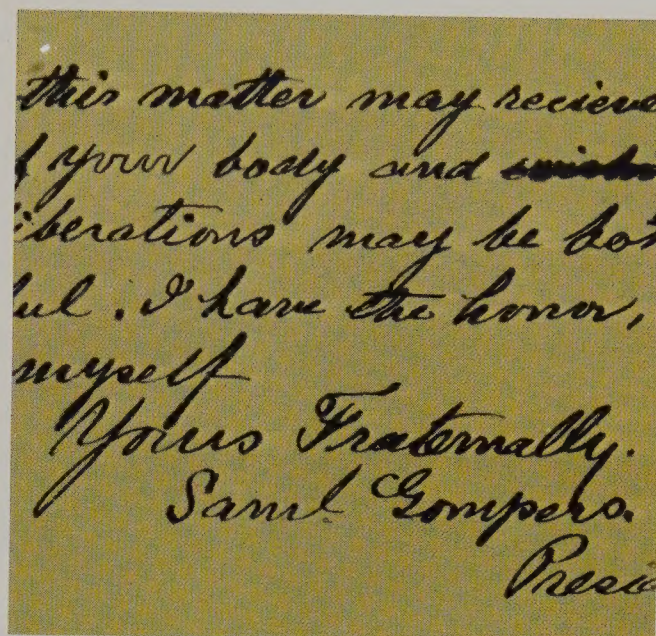 this matter may recieve
f your body and
iberations may be bot
ful. I have the honor,
myself
Yours Fraternally.
Saml Gompers.
Presi